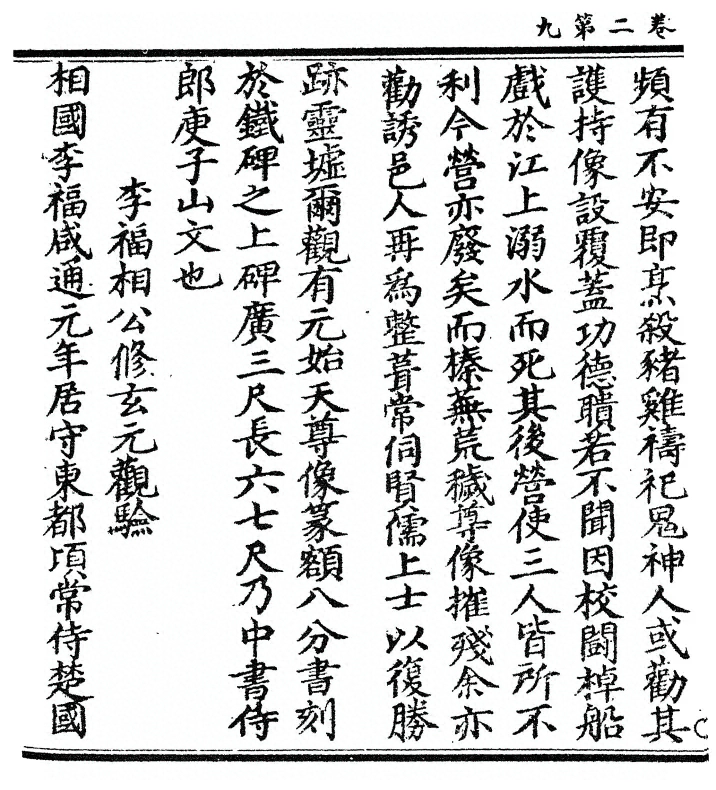 卷二第九
頻有不安即烹殺豬雞禱祀鬼神人或勸其
護持像設覆蓋功德聵若不聞因校鬪棹船
戲於江上溺水而死其後營使三人皆所不
利今營亦廢矣而榛蕪荒穢尊像摧殘余亦
勸誘邑人再為整葺常伺賢儒上士以復勝
跡靈墟爾觀有元始天尊像篆額八分書刻
於鐵碑之上碑廣三尺長六七尺乃中書侍
郎庾子山文也
李福相公修玄元觀驗
相國李福咸通元年居守東都頃常侍楚國